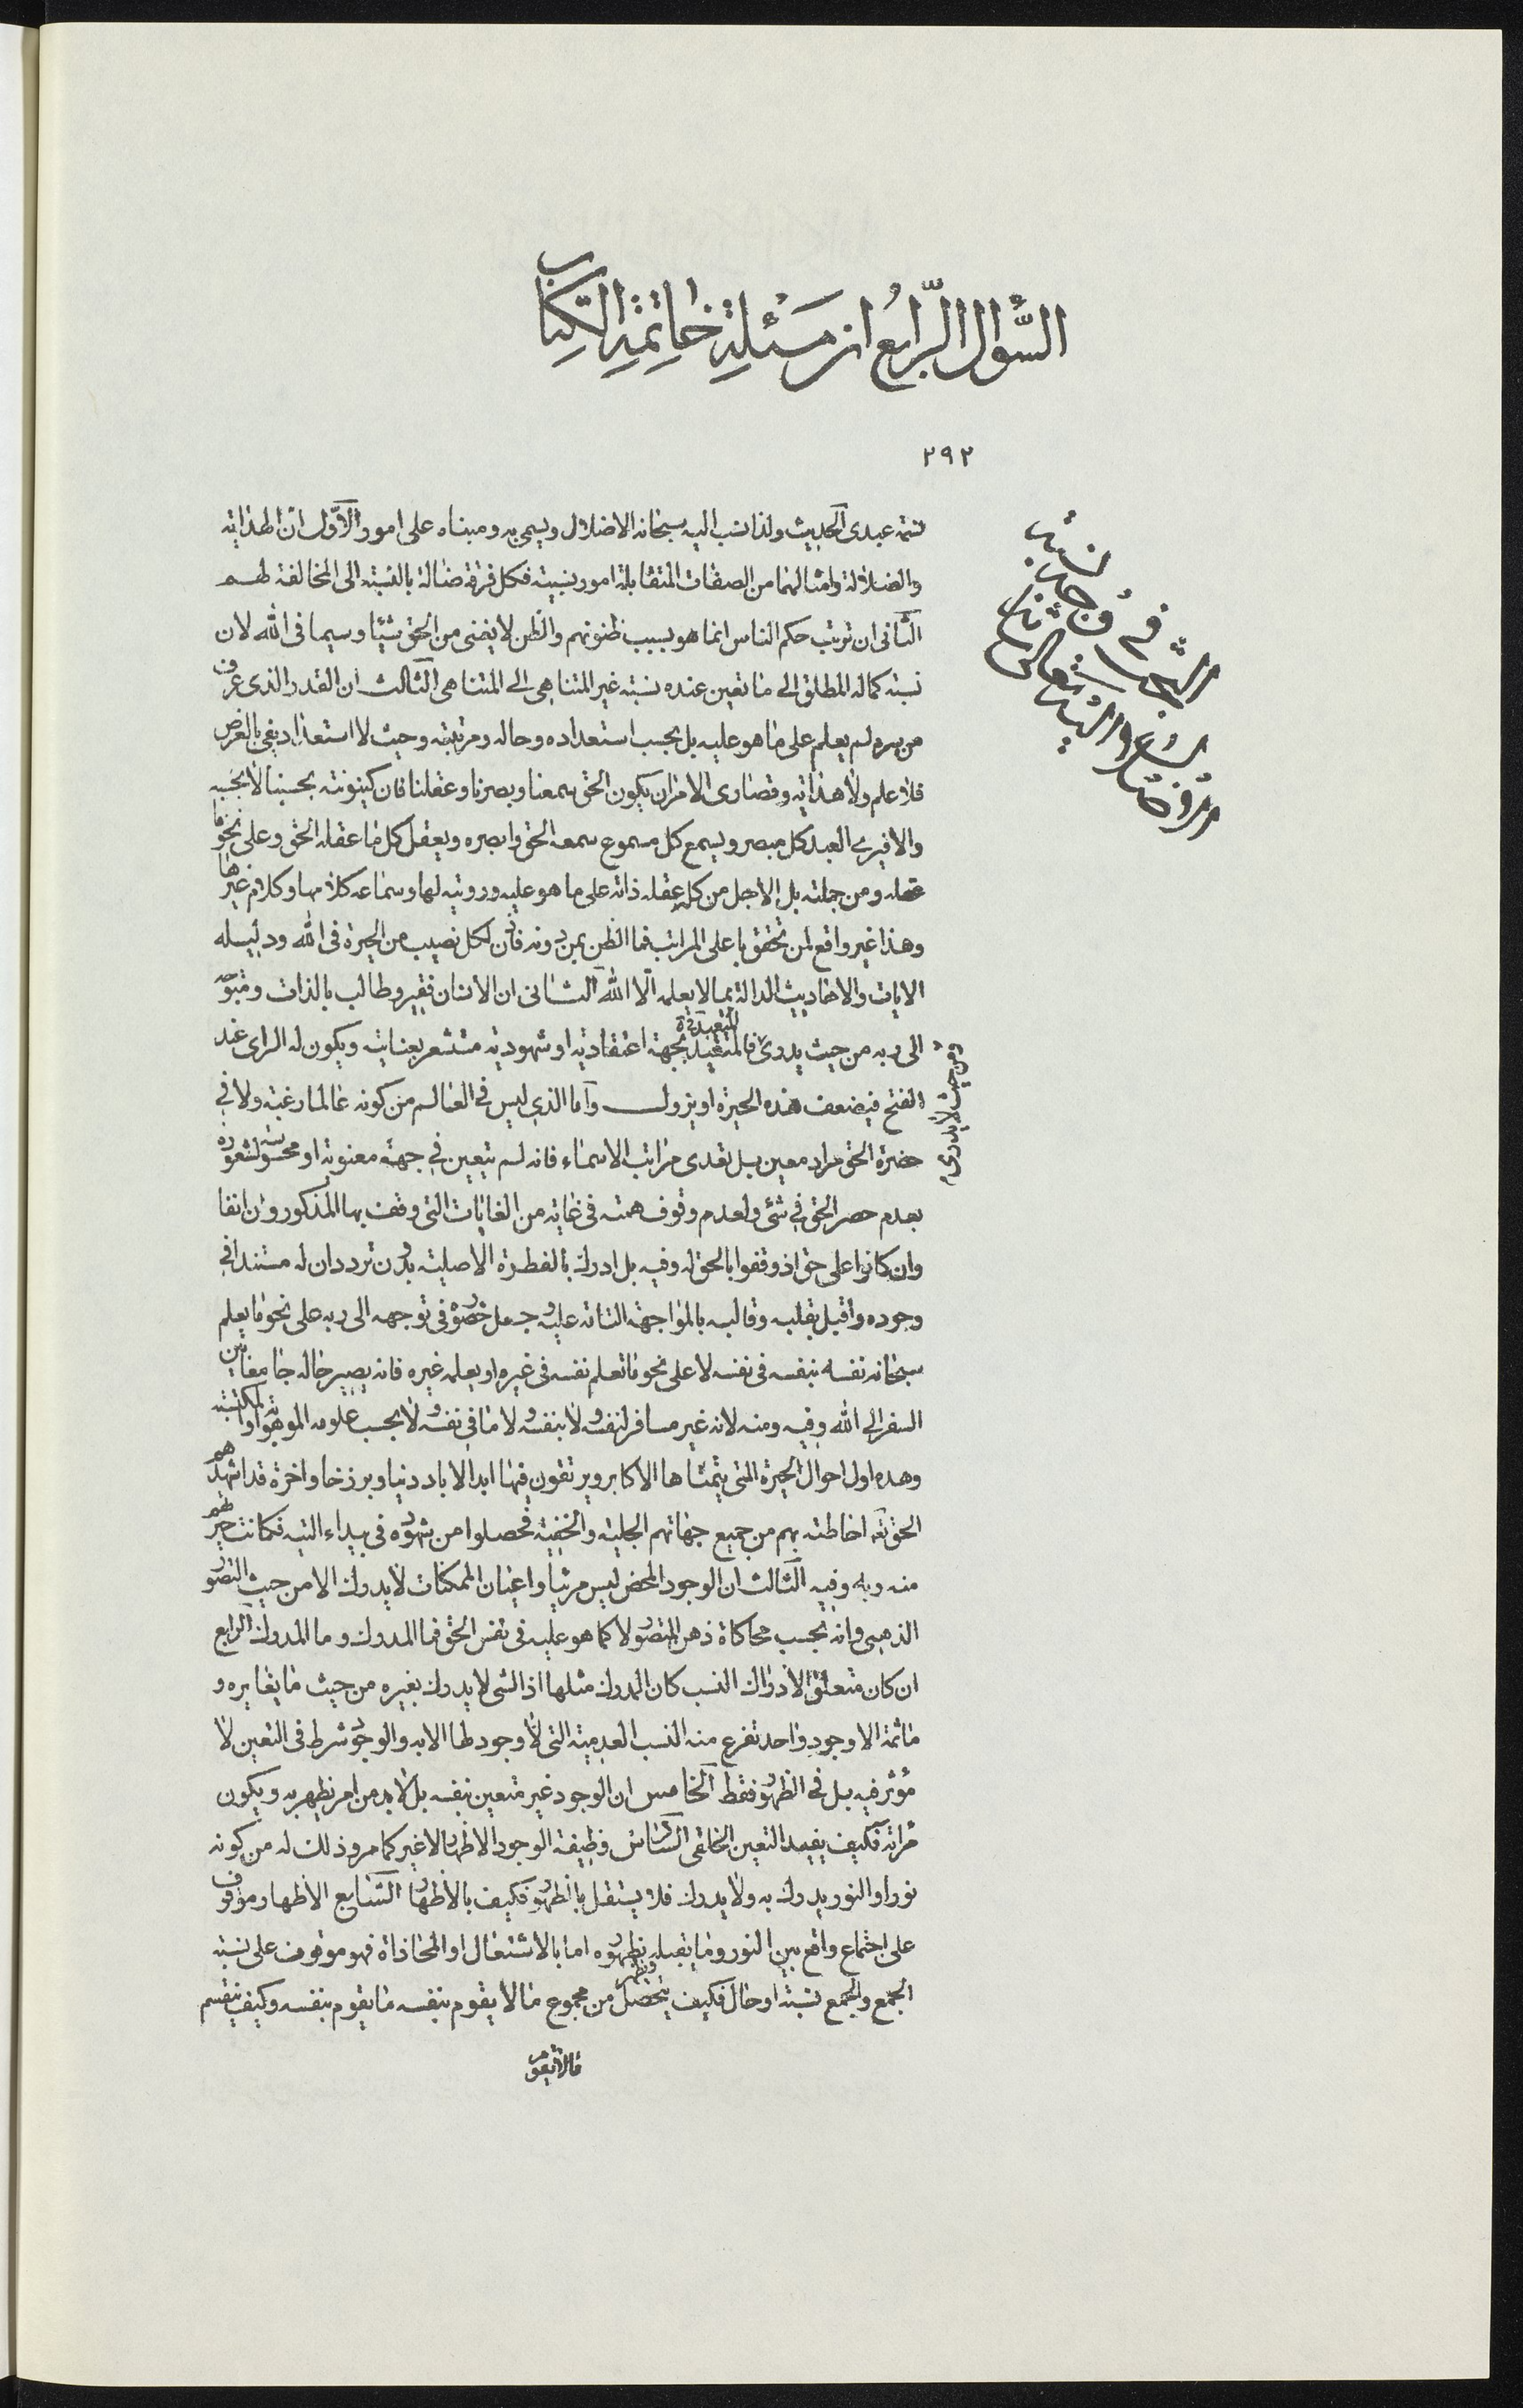 السّؤال الرّابع از مسئلة خاتمة الكتاب
٢٩٢
البحث في وجه نسبة
الاضلال والتيه تعالى شانه
شتمه عبدى الحديث ولذا نسب اليه سبحانه الاضلال ويسمى به ومبناه على امور الاوّل ان الهداية
والضلالة وامثالهما من الصفات المتقابلة امور نسبية فكل فرقة ضالة بالنسبة الى المخالفة لهم
الثانى ان ترتب حكم الناس انما هو بسبب ظنونهم والظن لا يغنى من الحق شيئا وسيما فى الله لان
نسبة كماله المطلق الى ما تعين عنده نسبة غير المتناهى الى المتناهى الثالث ان القدر الذى عرف
من سره لم يعلم على ما هو عليه بل بحسب استعداده وحاله ومرتبته وحيث لا استعداد يفى بالغرض
فلا علم ولا هداية وقصارى الامر ان يكون الحق سمعنا وبصرنا وعقلنا فان كينونته بحسبنا لا بحسبه
والا فيرى العبد كل مبصر ويسمع كل مسموع سمعه الحق وابصره ويعقل كل ما عقله الحق وعلى نحو ما
عقله ومن جملته بل الاجل من كله عقله ذاته على ما هو عليه ورويته لها وسماعه كلامها وكلام غيرها
وهذا غير واقع لمن تحقق باعلى المراتب فما الظن بمن دونه فاذن لكل نصيب من الحيرة فى الله ودليله
الايات والاحاديث الدالة بما لا يعلمه الّا الله الثانى ان الانسان فقير وطالب بالذات ومتوجه
الى ربه من حيث يدرى فالمتقيد بجهة اعتقادية او شهودية مستشعر بعنايته ويكون له الراى عند
ومن حيث لا يدرى
الفتح فيضعف هذه الحيرة او يزول واما الذى ليس فى العالم من كونه عالما رغبة ولا فى
حضرة الحق مراد معين بل تعدى مراتب الاسماء فانه لم يتعين فى جهة معنوية او محسوسة لشعوره
بعدم حصر الحق فى شئ ولعدم وقوف همته فى غاية من الغايات التى وقف بها المذكورون انفا
وان كانوا على حق اذ وقفوا بالحق له وفيه بل ادرك بالفطرة الاصلية بدون تردد ان له مستندا فى
وجوده واقبل بقلبه وقالبه بالمواجهة التامة عليه وجعل حضوره فى توجهه الى ربه على نحو ما يعلم
سبحانه نفسه بنفسه فى نفسه لا على نحو ما تعلم نفسه فى غيره او يعلمه غيره فانه يصير حاله جامعا بين
السفر الى الله وفيه ومنه لانه غير مسافر لنفسه ولا بنفسه ولا فى نفسه ولا بحسب علومه الموهوبة او المكتسبة
وهذه اول احوال الحيرة التى يتمناها الاكابر ويرتقون فيها ابد الاباد دنيا وبرزخا واخرة قد اشهدهم
الحق تعه احاطته بهم من جميع جهاتهم الجلية والخفية فحصلوا من شهوده فى بيداء التيه فكانت حيرتهم
منه وبه وفيه الثالث ان الوجود المحض ليس مرئيا واعيان الممكنات لا يدرك الا من حيث التصور
الذهنى وانه بحسب محاكاة ذهن المتصور لا كما هو عليه فى نفس الحق فما المدرك وما المدرك الرابع
ان كان متعلق الادراك النسب كان المدرك مثلها اذ الشى لا يدرك بغيره من حيث ما يغايره و
ماثمة الا وجود واحد تفرع منه النسب العدمية التى لا وجود لها الا به والوجود شرط فى التعين لا
مؤثر فيه بل فى الظهور فقط الخامس ان الوجود غير متعين بنفسه بل لا بد من امر يظهر به ويكون
مراته فكيف يفيد التعين الخلقى السادس وظيفة الوجود الاظهار لا غير كما مر وذلك له من كونه
نورا والنور يدرك به ولا يدرك فلا يستقل بالظهور فكيف بالاظهار السابع الاظهار موقوف
على اجتماع واقع بين النور وما يقبله بظهوره اما بالاشتغال او المحاذاة فهو موقوف على نسبة
الجمع والجمع نسبة او حال فكيف يتحصل من مجموع ما لا يقوم بنفسه ما يقوم بنفسه وكيف ينقسم
ما لا يقوم